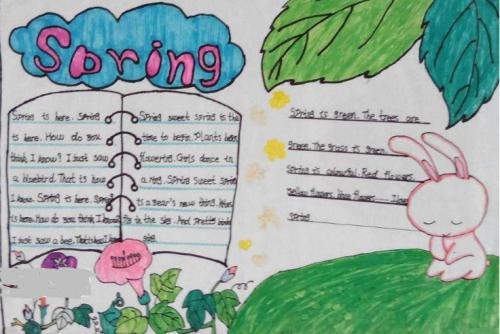 Spring
Spring is here. Spring
is here. How do you
think, I know? I just saw
a bluebird. That is how
I know. Spring is here. Spring
is here. How do you think, I know?
I just saw a bee. That is how I know
Spring sweet spring is the
time to begin. Plants begin
flowering. Girls dance in
a ring. Spring sweet spring
is a year's new thing.
in the sky. And pretty birds
Spring is green. The trees are
green. The grass is green.
Spring is colourful. Red flowers.
Yellow flowers. blue flowers. I love
spring.